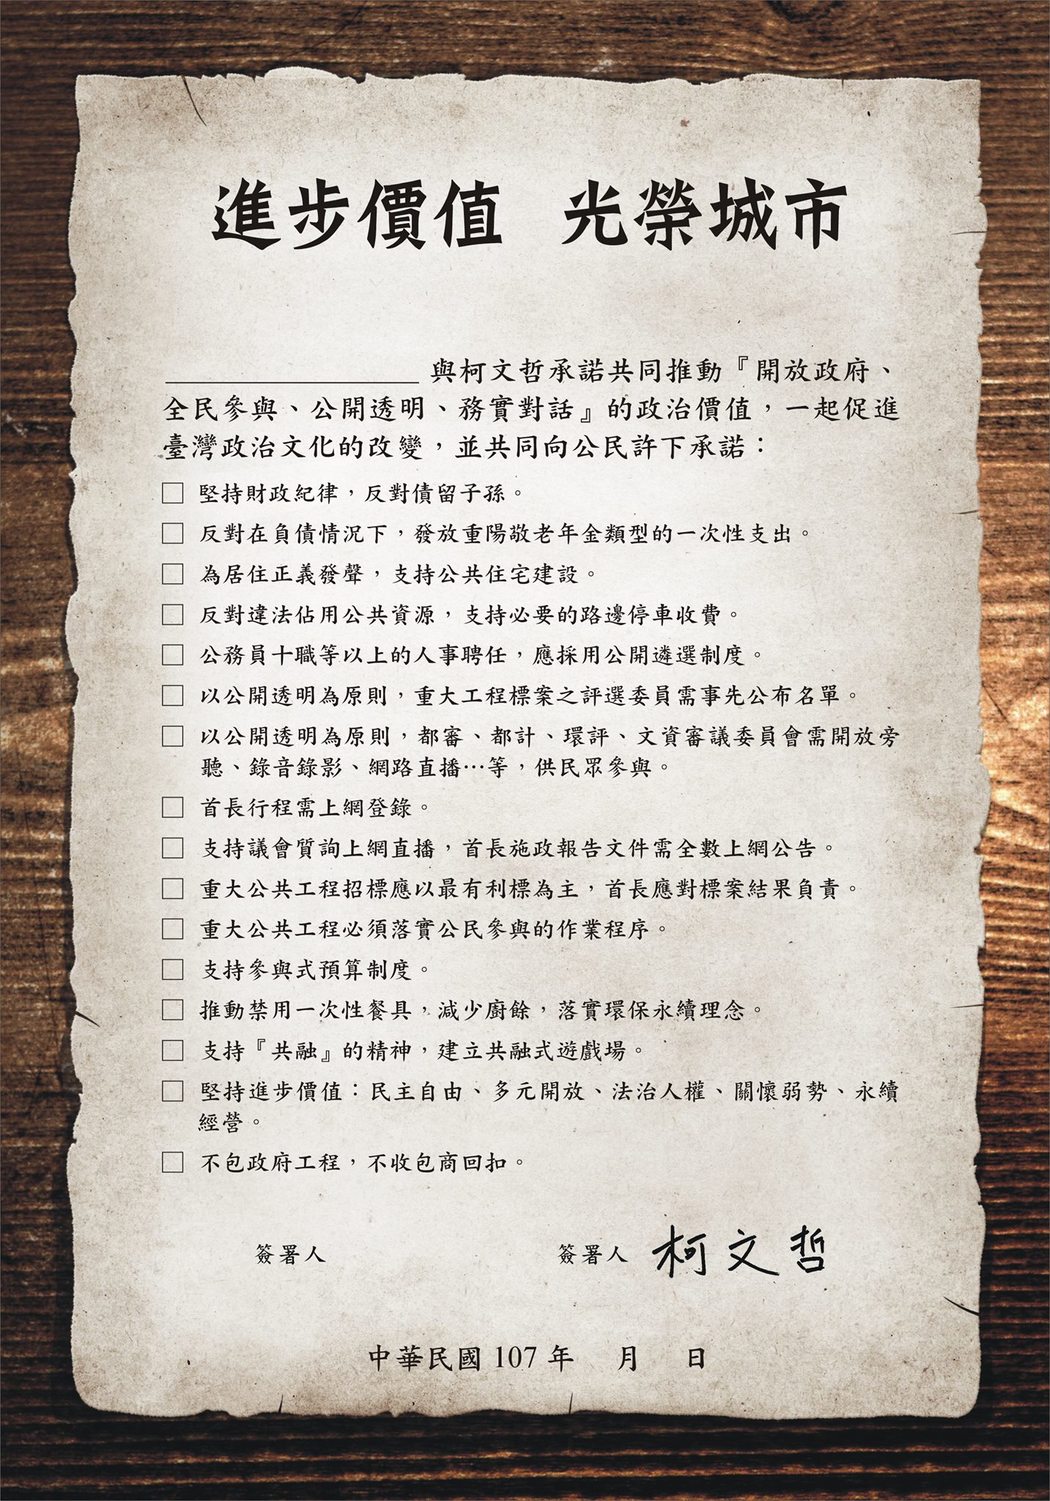 進步價值 光榮城市
＿＿＿＿＿＿＿＿＿與柯文哲承諾共同推動『開放政府、
全民參與、公開透明、務實對話』的政治價值，一起促進
臺灣政治文化的改變，並共同向公民許下承諾：
□ 堅持財政紀律，反對債留子孫。
□ 反對在負債情況下，發放重陽敬老年金類型的一次性支出。
□ 為居住正義發聲，支持公共住宅建設。
□ 反對違法佔用公共資源，支持必要的路邊停車收費。
□ 公務員十職等以上的人事聘任，應採用公開遴選制度。
□ 以公開透明為原則，重大工程標案之評選委員需事先公布名單。
□ 以公開透明為原則，都審、都計、環評、文資審議委員會需開放旁
聽、錄音錄影、網路直播…等，供民眾參與。
□ 首長行程需上網登錄。
□ 支持議會質詢上網直播，首長施政報告文件需全數上網公告。
□ 重大公共工程招標應以最有利標為主，首長應對標案結果負責。
□ 重大公共工程必須落實公民參與的作業程序。
□ 支持參與式預算制度。
□ 推動禁用一次性餐具，減少廚餘，落實環保永續理念。
□ 支持『共融』的精神，建立共融式遊戲場。
□ 堅持進步價值：民主自由、多元開放、法治人權、關懷弱勢、永續
經營。
□ 不包政府工程，不收包商回扣。
簽署人 簽署人 柯文哲
中華民國 107 年 月 日